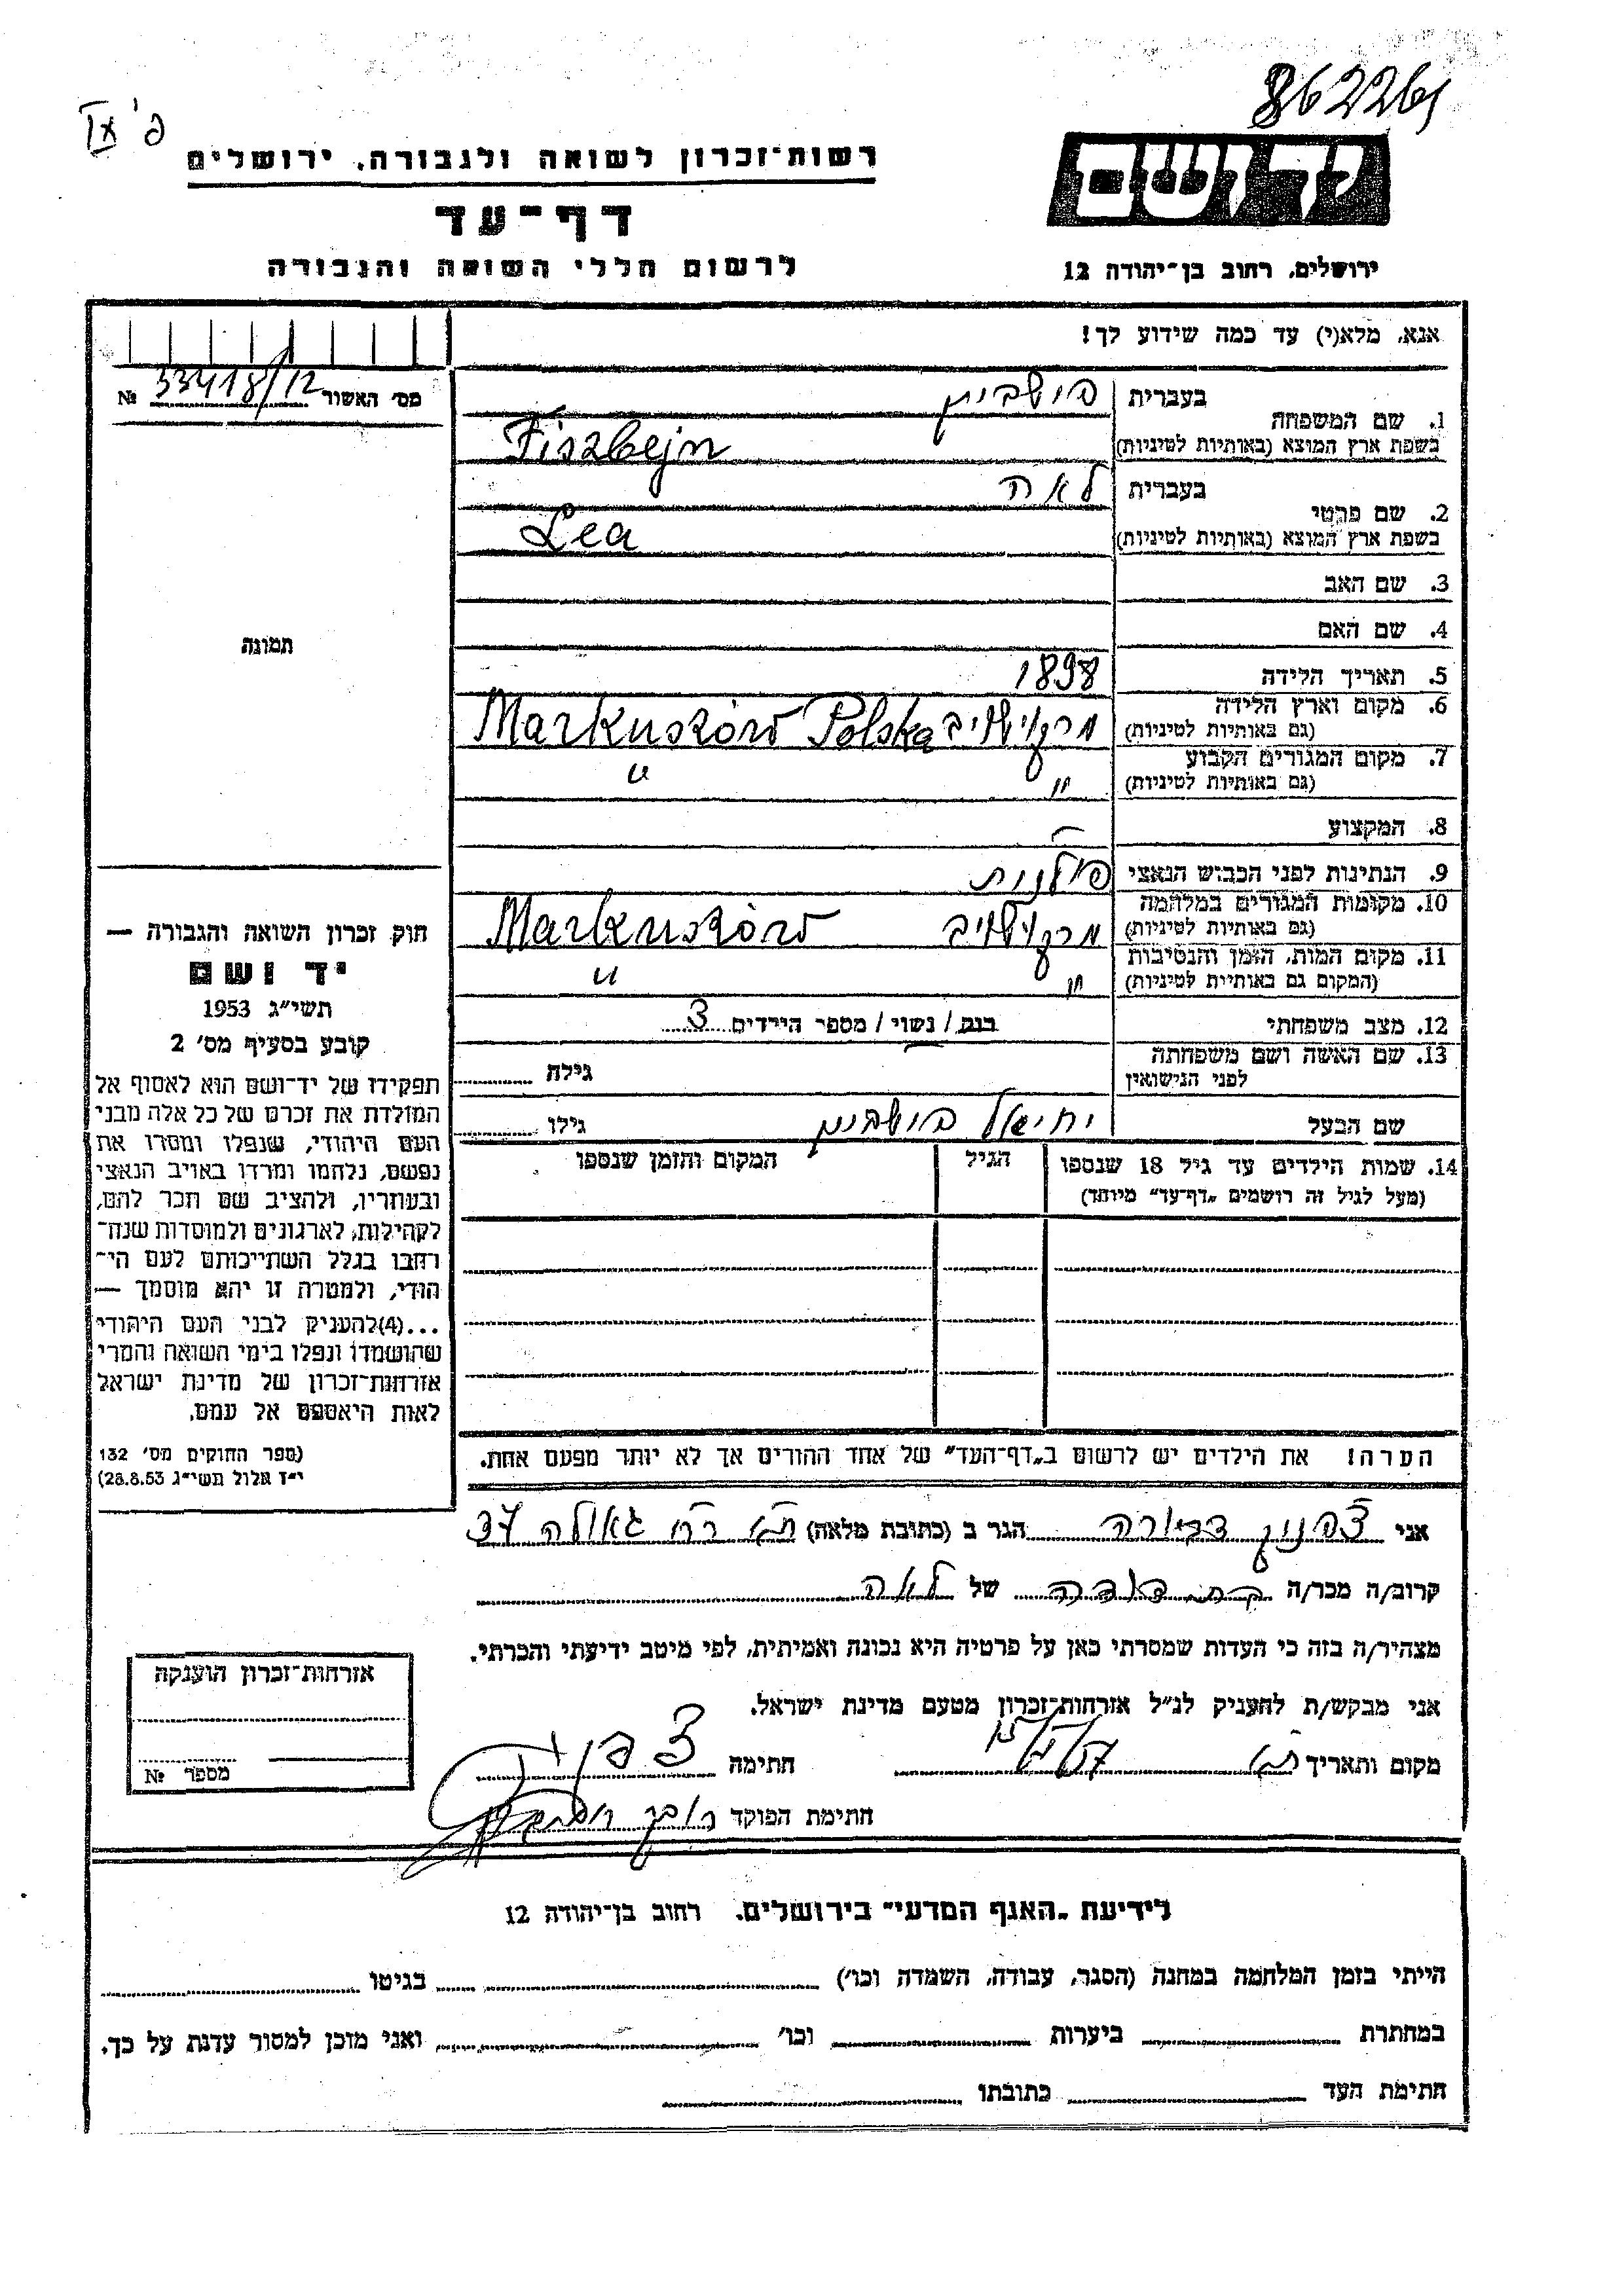 862261
פ' IX
יד ושם
רשות־זכרון לשואה ולגבורה, ירושלים
דף־עד
לרשום חללי השואה והגבורה
ירושלים, רחוב בן־יהודה 12
אנא, מלא(י) עד כמה שידוע לך!
מס' האשור 33418/12 №
בעברית פישביין
1. שם המשפחה
בשפת ארץ המוצא (באותיות לטיניות) Fiszbejn
בעברית לאה
2. שם פרטי
בשפת ארץ המוצא (באותיות לטיניות) Lea
3. שם האב
4. שם האם
תמונה
5. תאריך הלידה 1898
6. מקום וארץ הלידה
(גם באותיות לטיניות) מרקושוב Markuszów Polska
7. מקום המגורים הקבוע
(גם באותיות לטיניות) " "
8. המקצוע
9. הנתינות לפני הכבוש הנאצי פולנית
10. מקומות המגורים במלחמה
(גם באותיות לטיניות) מרקושוב Markuszów
11. מקום המות, הזמן והנסיבות
(המקום גם באותיות לטיניות) " "
12. מצב משפחתי רווק / נשוי / מספר הילדים 3
13. שם האשה ושם משפחתה
לפני הנישואין גילה
שם הבעל יחיאל פישביין גילו
14. שמות הילדים עד גיל 18 שנספו הגיל המקום והזמן שנספו
(מעל לגיל זה רושמים „דף־עד" מיוחד)
חוק זכרון השואה והגבורה —
יד ושם
תשי"ג 1953
קובע בסעיף מס' 2
תפקידו של יד־ושם הוא לאסוף אל
המולדת את זכרם של כל אלה מבני
העם היהודי, שנפלו ומסרו את
נפשם, נלחמו ומרדו באויב הנאצי
ובעוזריו, ולהציב שם וזכר להם,
לקהילות, לארגונים ולמוסדות שנח־
רבו בגלל השתייכותם לעם הי־
הודי, ולמטרה זו יהא מוסמך —
...(4)להעניק לבני העם היהודי
שהושמדו ונפלו בימי השואה והמרי
אזרחות־זכרון של מדינת ישראל
לאות היאספם אל עמם.
(ספר החוקים מס' 132
י"ז אלול תשי"ג 28.8.53)
הערה! את הילדים יש לרשום ב„דף־העד" של אחד ההורים אך לא יותר מפעם אחת.
אני דבורה הגר ב (כתובת מלאה) ת"א רח' גאולה 37
קרוב/ה מכר/ה של לאה
מצהיר/ה בזה כי העדות שמסרתי כאן על פרטיה היא נכונה ואמיתית, לפי מיטב ידיעתי והכרתי.
אני מבקש/ת להעניק לנ"ל אזרחות־זכרון מטעם מדינת ישראל.
מקום ותאריך ת"א חתימה
חתימת הפוקד
אזרחות־זכרון הוענקה
מספר №
לידיעת „האגף המדעי" בירושלים, רחוב בן־יהודה 12
הייתי בזמן המלחמה במחנה (הסגר, עבודה, השמדה וכו') בגיטו
במחתרת ביערות וכו' ואני מוכן למסור עדות על כך.
חתימת העד כתובתו